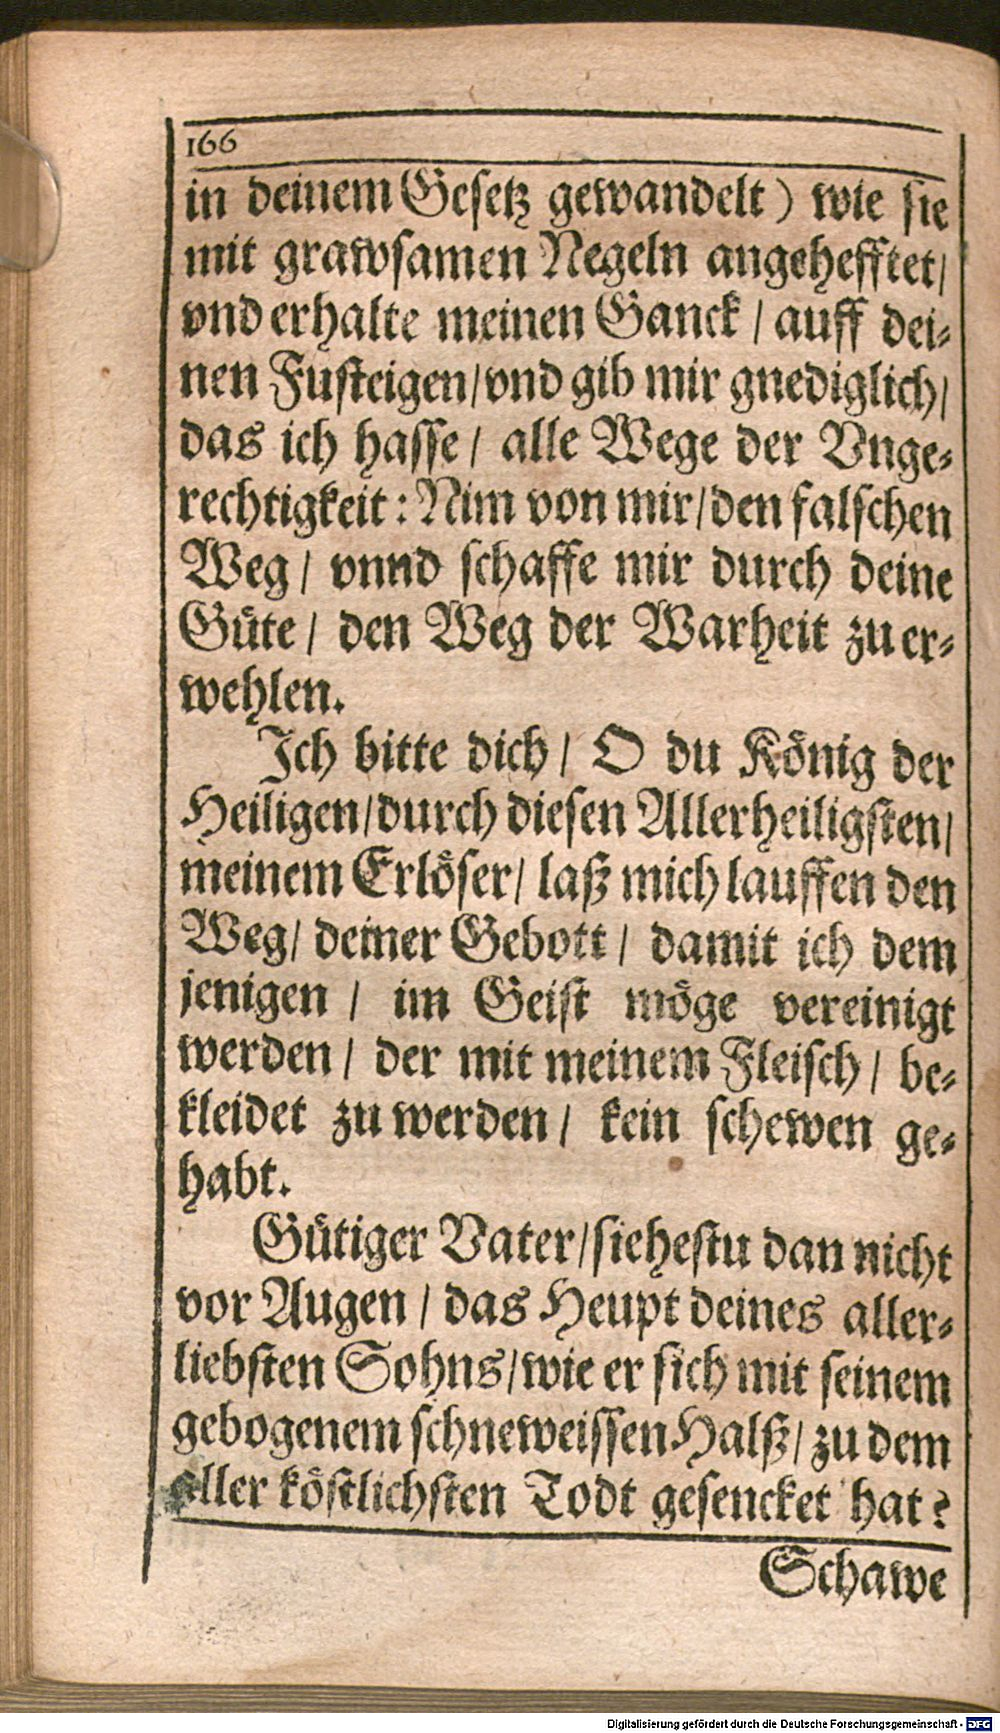 166
in deinem Gesetz gewandelt) wie sie
mit grawsamen Negeln angehefftet/
vnd erhalte meinen Ganck / auff dei-
nen Fusteigen/vnd gib mir gnediglich/
das ich hasse / alle Wege der Vnge-
rechtigkeit: Nim von mir/den falschen
Weg / vnnd schaffe mir durch deine
Güte / den Weg der Warheit zu er-
wehlen.
Ich bitte dich / O du König der
Heiligen/durch diesen Allerheiligsten/
meinem Erlöser/ laß mich lauffen den
Weg/ deiner Gebott / damit ich dem
jenigen / im Geist möge vereinigt
werden / der mit meinem Fleisch / be-
kleidet zu werden / kein schewen ge-
habt.
Gütiger Vater/siehestu dan nicht
vor Augen / das Heupt deines aller-
liebsten Sohns/wie er sich mit seinem
gebogenem schneweissen Halß/ zu dem
aller köstlichsten Todt gesencket hat?
Schawe
Digitalisierung gefördert durch die Deutsche Forschungsgemeinschaft - DFG